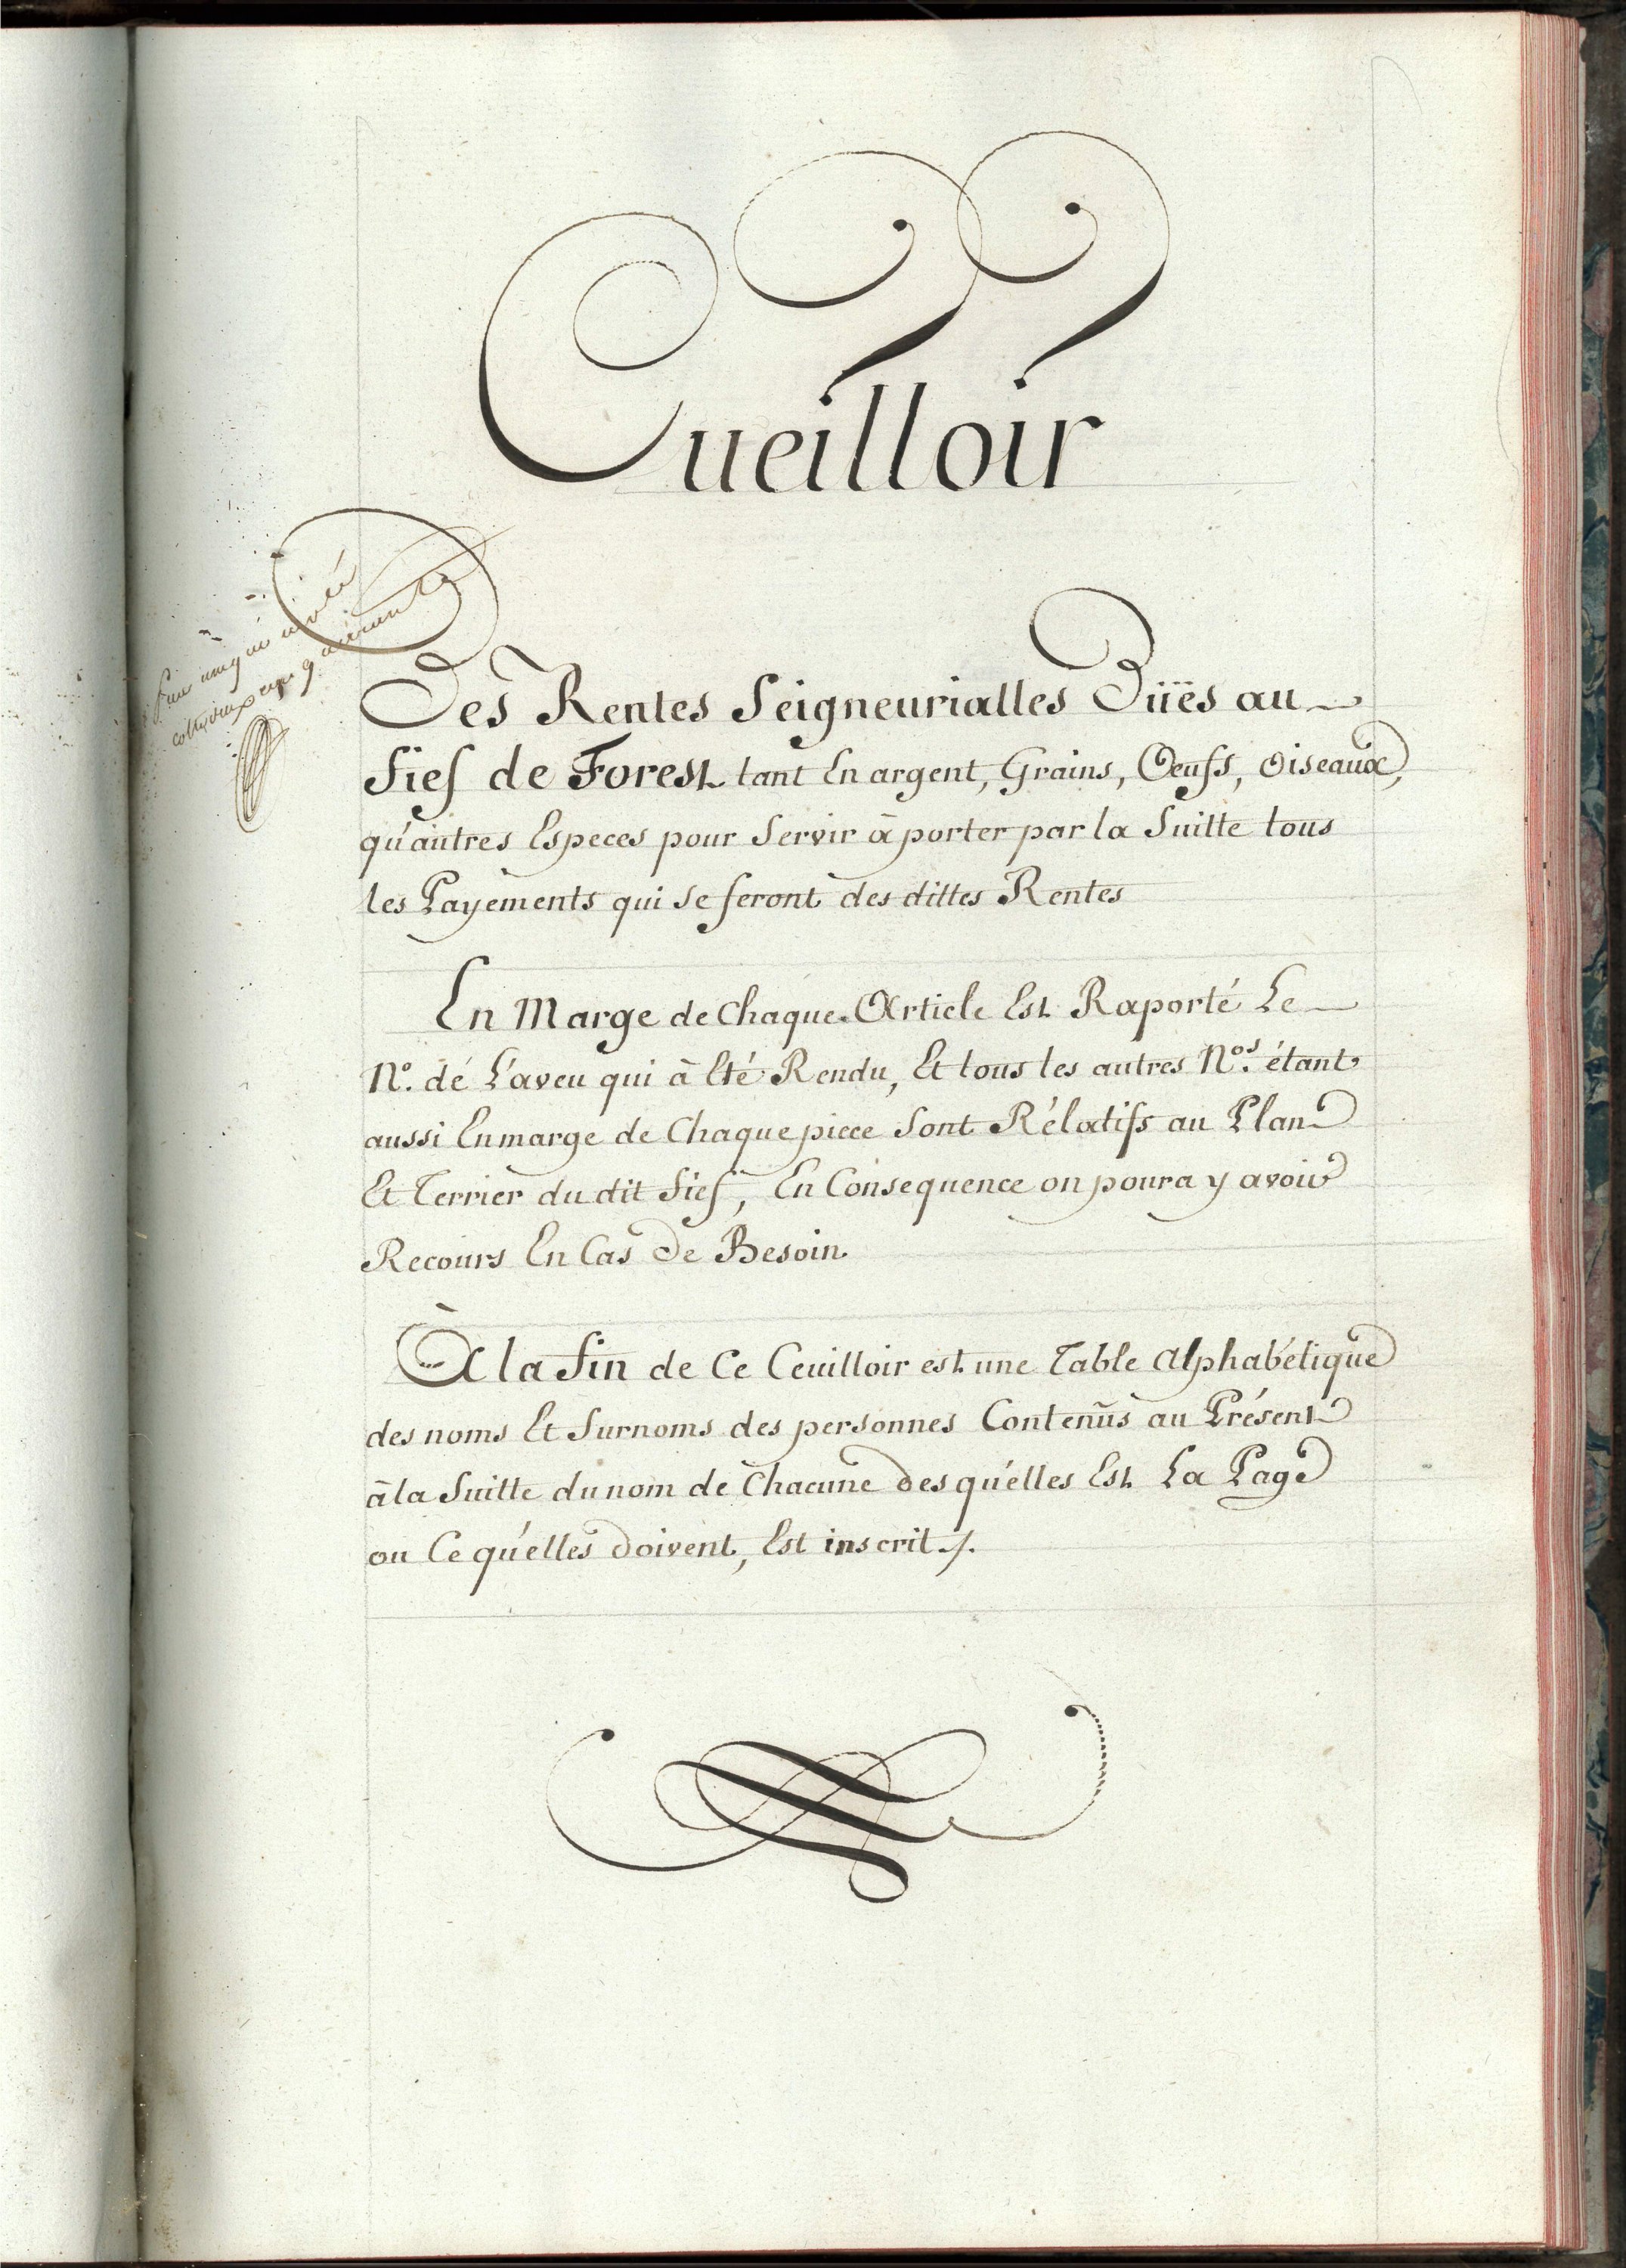 Cueilloir
Des Rentes Seigneurialles Düës au
fief de Forest tant En argent, Grains, Œufs, oiseaux,
qu'autres Especes pour Servir à porter par la Suitte tous
les Payements qui se feront des dittes Rentes
En Marge de Chaque Article Est Raporté Le
N.º dé L'aveu qui à Eté Rendu, Et tous les autres N.ºs étant
aussi En marge de Chaque piece Sont Rélatifs au Plan
Et Terrier du dit fief, En Consequence on poura y avoir
Recours En Cas De Besoin
À la fin de Ce Ceuilloir est une Table Alphabétique
des noms Et Surnoms des personnes Contenüs au Présent
à la Suitte du nom de Chacune des qu'elles Est La Page
ou Ce qu'elles doivent, Est inscrit ./.